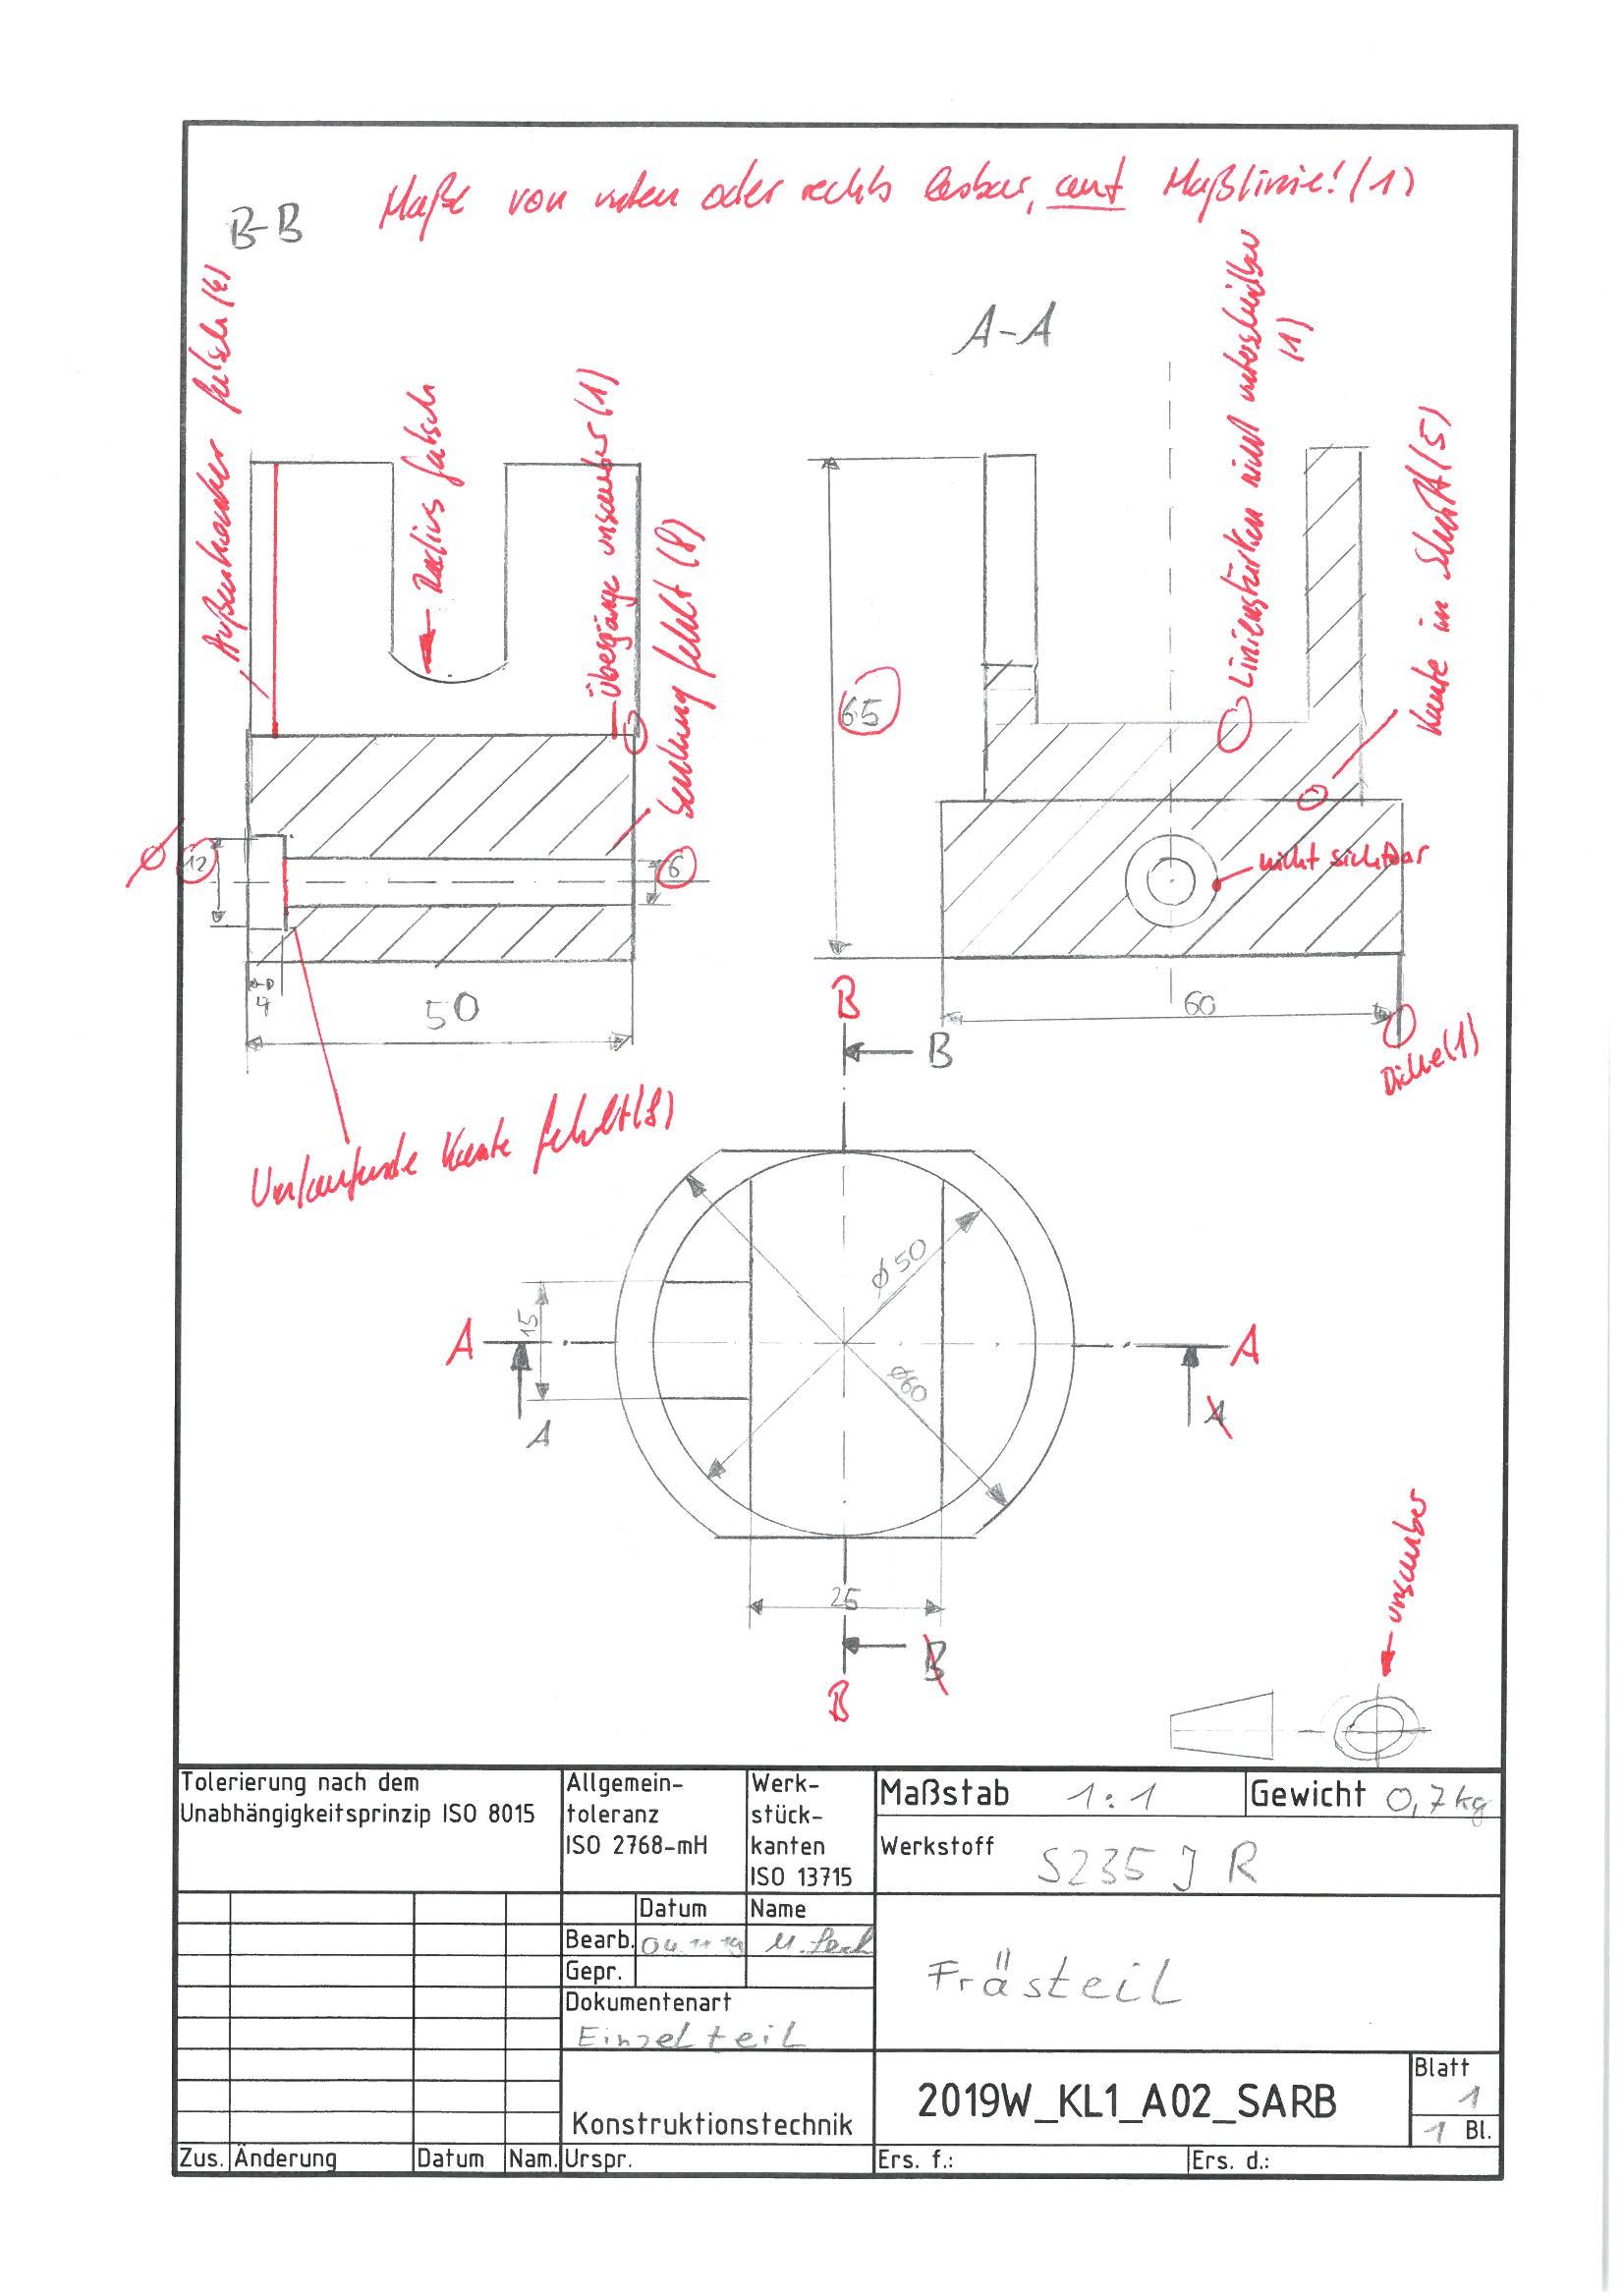 Maße von unten oder rechts lesbar, auf Maßlinie! (1)
B-B
A-A
Außenkonter falsch (4)
Radius falsch
Übergänge unsauber (1)
Senkung fehlt (8)
Linienstärken nicht unterscheidbar
(1)
Kante im Schnitt (5)
65
⌀ 12
6
nicht sichtbar
4
50
60
Dicke (1)
B
B
Umlaufende Kante fehlt (8)
⌀50
15
A
A
⌀60
A
A
unsauber
25
B
B
Tolerierung nach dem
Unabhängigkeitsprinzip ISO 8015
Allgemein-
toleranz
ISO 2768-mH
Werk-
stück-
kanten
ISO 13715
Maßstab 1:1
Gewicht 0,7kg
Werkstoff S235 J R
Datum Name
Bearb. 04.11.19
Gepr.
Dokumentenart
Einzelteil
Frästeil
Konstruktionstechnik
2019W_KL1_A02_SARB
Blatt
1
1 Bl.
Zus. Änderung Datum Nam. Urspr. Ers. f.: Ers. d.: